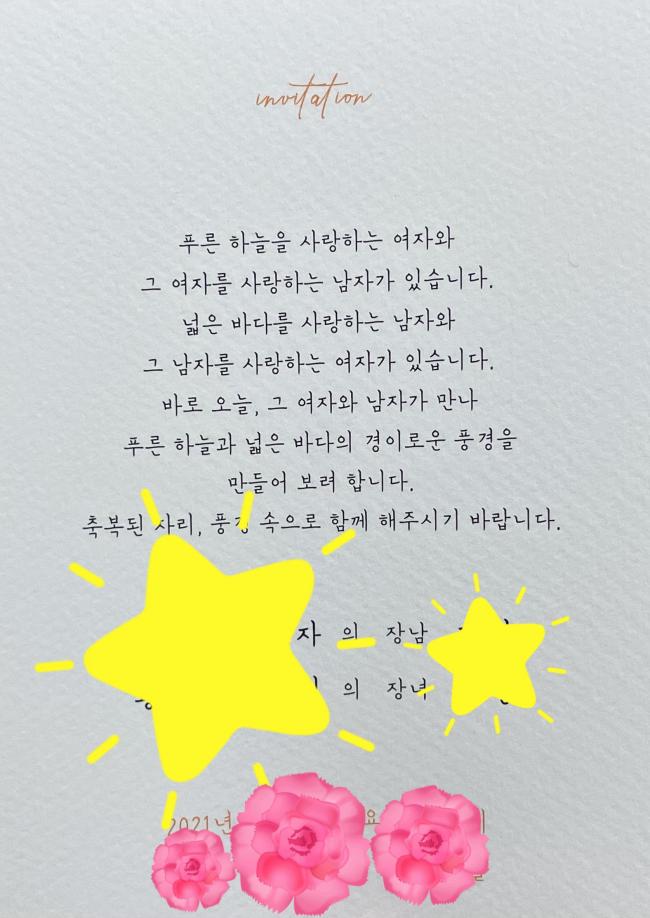 invitation
푸른 하늘을 사랑하는 여자와
그 여자를 사랑하는 남자가 있습니다.
넓은 바다를 사랑하는 남자와
그 남자를 사랑하는 여자가 있습니다.
바로 오늘, 그 여자와 남자가 만나
푸른 하늘과 넓은 바다의 경이로운 풍경을
만들어 보려 합니다.
축복된 자리, 풍경 속으로 함께 해주시기 바랍니다.
자 의 장남
의 장녀
2021년